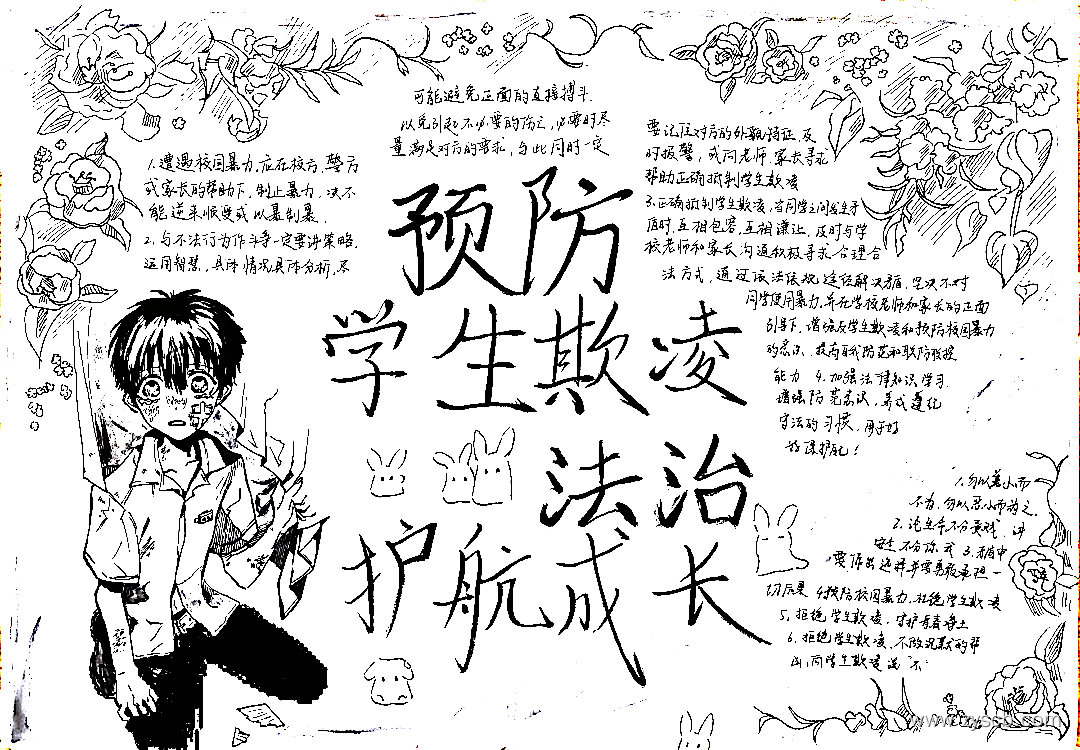 1.遭遇校园暴力,应在校方、警方
或家长的帮助下,制止暴力,决不
能逆来顺受或以暴制暴.
2.与不法行为作斗争一定要讲策略.
运用智慧,具体情况具体分析,尽
可能避免正面的直接搏斗.
以免引起不必要的伤亡,必要时尽
量满足对方的要求,与此同时一定
要记住对方的外貌特征,及
时报警,或向老师、家长寻求
帮助正确抵制学生欺凌
3.正确抵制学生欺凌,当同学之间发生矛
盾时,互相包容,互相谦让,及时与学
校老师和家长沟通积极寻求合理合
法方式,通过依法依规途径解决矛盾,坚决不对
同学使用暴力,并在学校老师和家长的正面
引导下,增强反学生欺凌和预防校园暴力
的意识、提高自我防范和
能力 4.加强法律知识学习.
增强防范意识,养成遵纪
守法的习惯,用于好
好保护自己!
预防
学生欺凌
法治
护航成长
1.勿以善小而
不为,勿以恶小而为之.
2.论生命不分贵贱,讲
安全不分你我 3.
要作出选择并需勇敢承担一
切后果 4.预防校园暴力,拒绝学生欺凌
5.拒绝学生欺凌,守护青春净土
6.拒绝学生欺凌,不做沉默的帮
凶,向学生欺凌说“不”